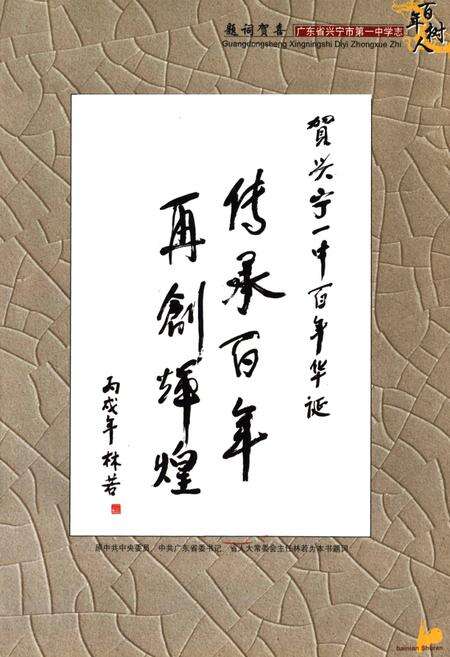 题词贺喜 广东省兴宁市第一中学志
Guangdongsheng Xingningshi Diyi Zhongxue Zhi
百年树人
賀兴宁一中百年华诞
传承百年
再創辉煌
丙戌年 林若
原中共中央委员／中共广东省委书记 省人大常委会主任林若为本书题词
bainian Shuren